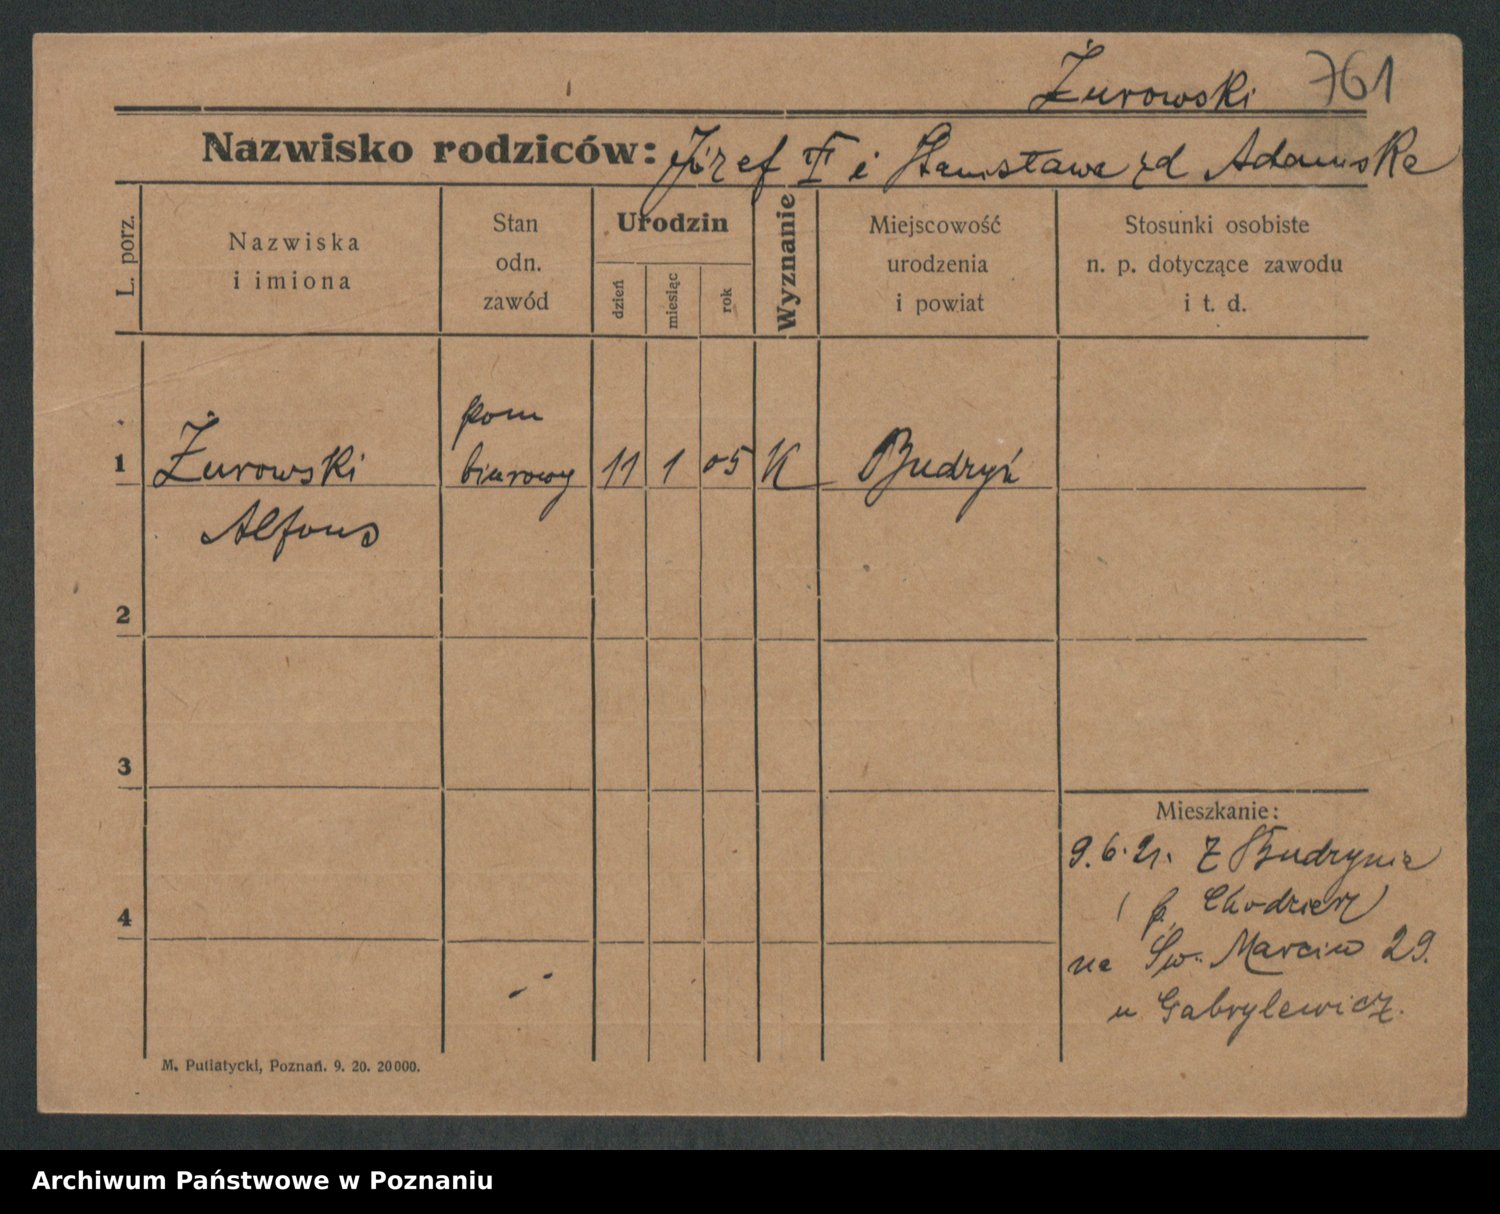 Żurowski 761
Nazwisko rodziców: Józef † i Stanisława zd Adamska
L. porz.
Nazwiska
i imiona
Stan
odn.
zawód
Urodzin
dzień
miesiąc
rok
Wyznanie
Miejscowość
urodzenia
i powiat
Stosunki osobiste
n. p. dotyczące zawodu
i t. d.
pom
1 Żurowski biurowy 11 1 05 K Budzyń
Alfons
2
3
4
Mieszkanie:
9.6.21. z Budzynia
p. Chodzież
na Św. Marcin 29.
u Gabrylewicz.
M. Putiatycki, Poznań. 9. 20. 20000.
Archiwum Państwowe w Poznaniu